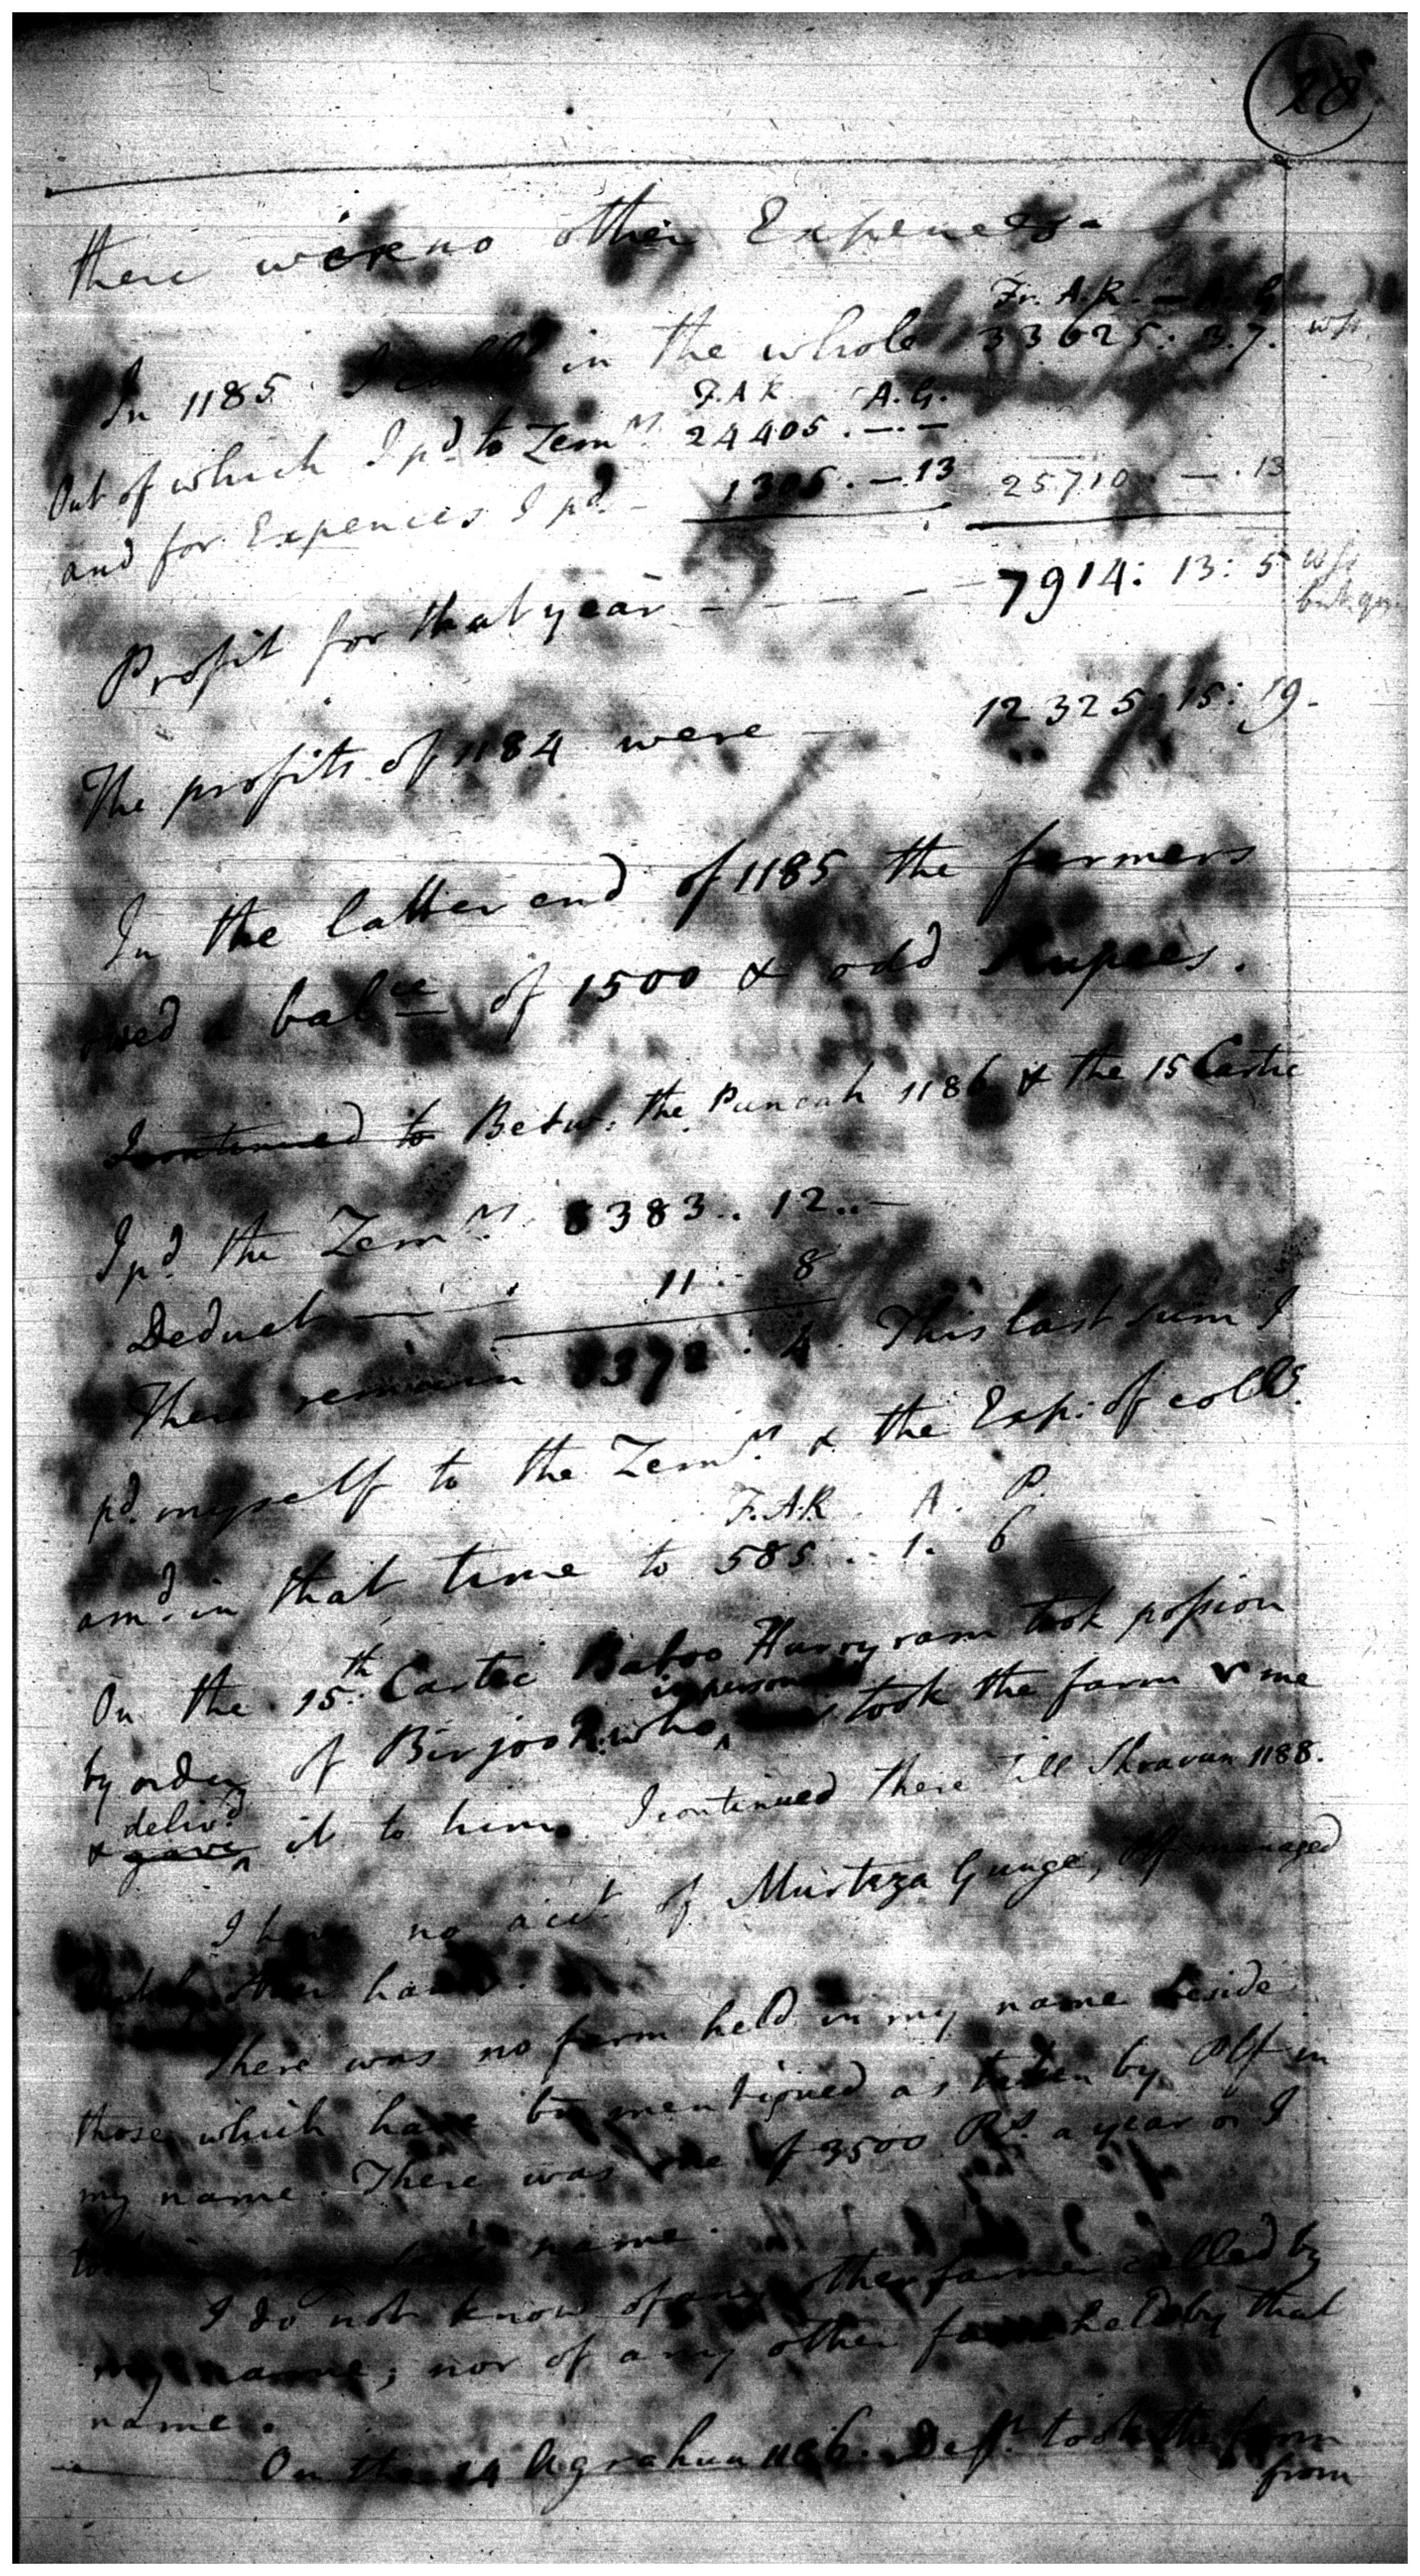 28
there were no other Expences
Fr. A.R. — A. G
In 1185 in the whole 33625: 3. 7.
F. A R A. G.
Out of which I pd. to Zemrs. 24405. —. —
and for Expences I pd. — 1305. — 13 25710. —. 13
Profit for that year — — — — 7914: 13: 5
The profits of 1184 were — 12325: 15: 19.
In the latter end of 1185 the farmers
owed a balce of 1500 & odd Rupees.
I continued to Betw: the Puncah 1186 & the 15 Cartic
I pd. the Zemrs. 8383.. 12.. —
Deduct — — . 11: — 8
There remain 8372: 4. This last sum I
pd. myself to the Zemrs. & the Exp: of colls.
F. A.R. A. P.
amd. in that time to 585.. 1. 6
On the 15th. Cartic Baboo Hurryram took possion
in person
by order of Birjoo R. who took the farm & me
delivd.
& gave it to him. I continued there till Shravun 1188.
I have no acct. of Murteza Gunge, Plf managed
other hands.
There was no farm held in my name beside
those which have bn mentioned as taken by Plf in
my name. There was one of 3500 Rs. a year wh I
name.
I do not know of any other farmer called by
my name; nor of any other farm held by that
name.
On the 14 Agrahun 1186. Deft. took the farm
from